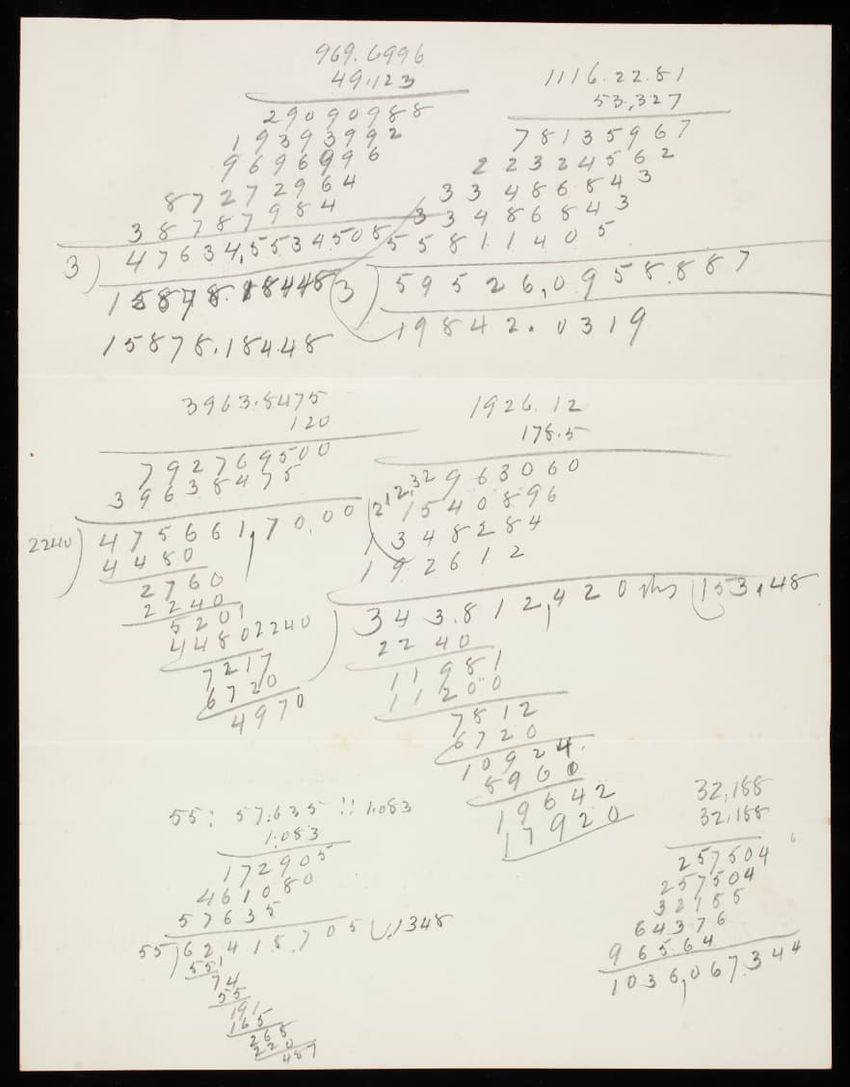 969.6996
49.123
29090988
19393992
9696996
87272964
38787984
3) 47634,5534508
15878.18448
15878.18448
1116.22.81
53,327
78135967
22324562
33486843
33486843
55811405
3) 59526,0958.887
19842.0319
3963.8475
120
792769500
39638475
2240) 475661,70,00 (212,32
4480
2760
2240
5201
4480
7217
6720
4970
1926.12
178.5
963060
1540896
1348284
192612
2240) 343.812,420 lbs (153,48
2240
11981
11200
7812
6720
10924
8960
19642
17920
55: 57.635 :: 1.083
1.083
172905
461080
57635
55) 62,418,705 (1,1348
55
74
55
191
165
268
220
487
32,188
32,188
257504
257504
32188
64376
96564
1036,067,344